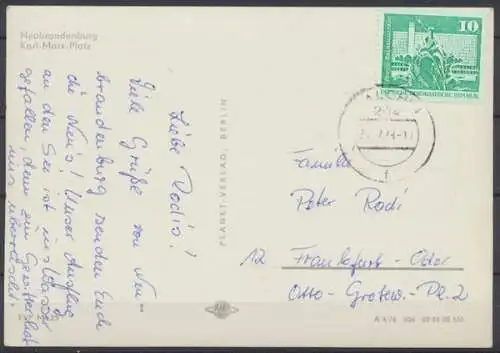 Neubrandenburg
Karl-Marx-Platz
Liebe Rodis!
Viele Grüße von Neu-
brandenburg senden Euch
die Neu's! Unser Ausflug
an den See ist ins Wasser
gefallen, denn ein Gewitter hat
uns überrascht.
PLANET-VERLAG, BERLIN
10
DEUTSCHE DEMOKRATISCHE REPUBLIK
Familie
Peter Rodi
12 Frankfurt-Oder
Otto-Grotew.-Pl. 2